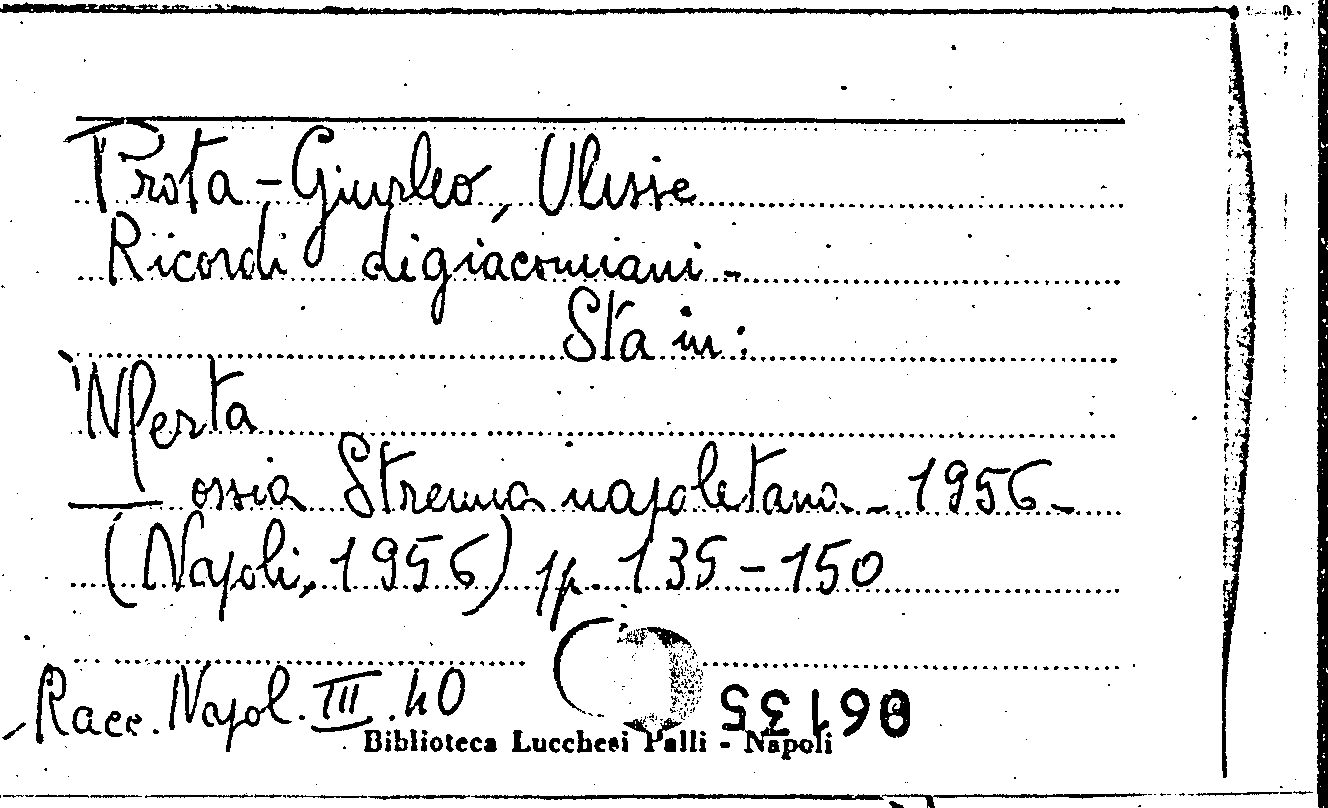 Prota-Giurleo, Ulisse
Ricordi digiacomiani -
Sta in:
'Nferta
ossia Strenna napoletana - 1956 -
(Napoli, 1956) pp. 135-150
Racc. Napol. III. 40
Biblioteca Lucchesi Palli - Napoli